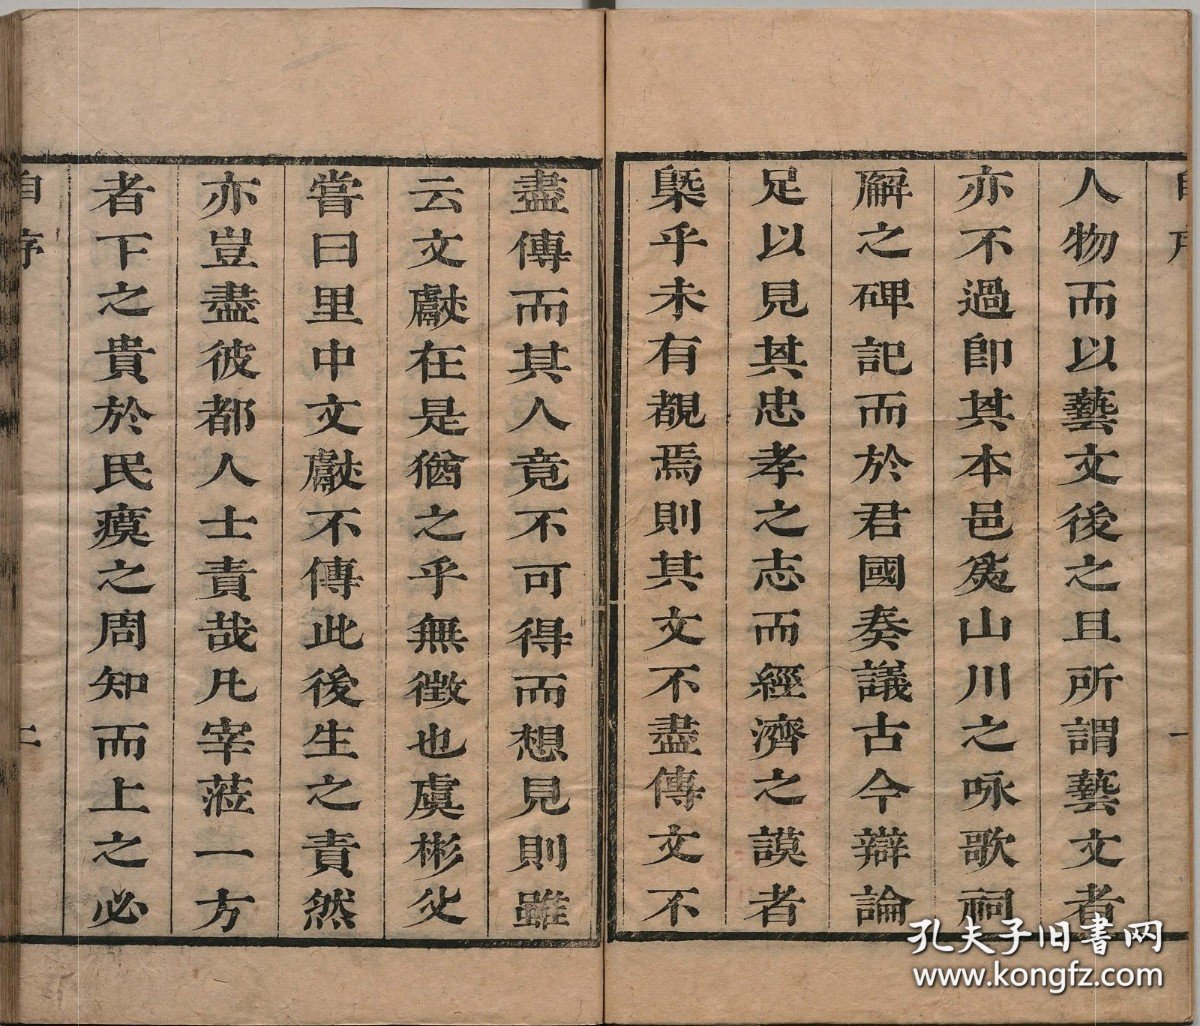 自序 一
人物而以藝文後之且所謂藝文者
亦不過即其本邑山川之咏歌祠
廨之碑記而於君國奏議古今辯論
足以見其忠孝之志而經濟之謨者
槩乎未有覩焉則其文不盡傳文不
盡傳而其人竟不可得而想見則雖
云文獻在是猶之乎無徵也虞彬父
嘗曰里中文獻不傳此後生之責然
亦豈盡彼都人士責哉凡宰蒞一方
者下之貴於民瘼之周知而上之必
自序 二
孔夫子旧書网
www.kongfz.com